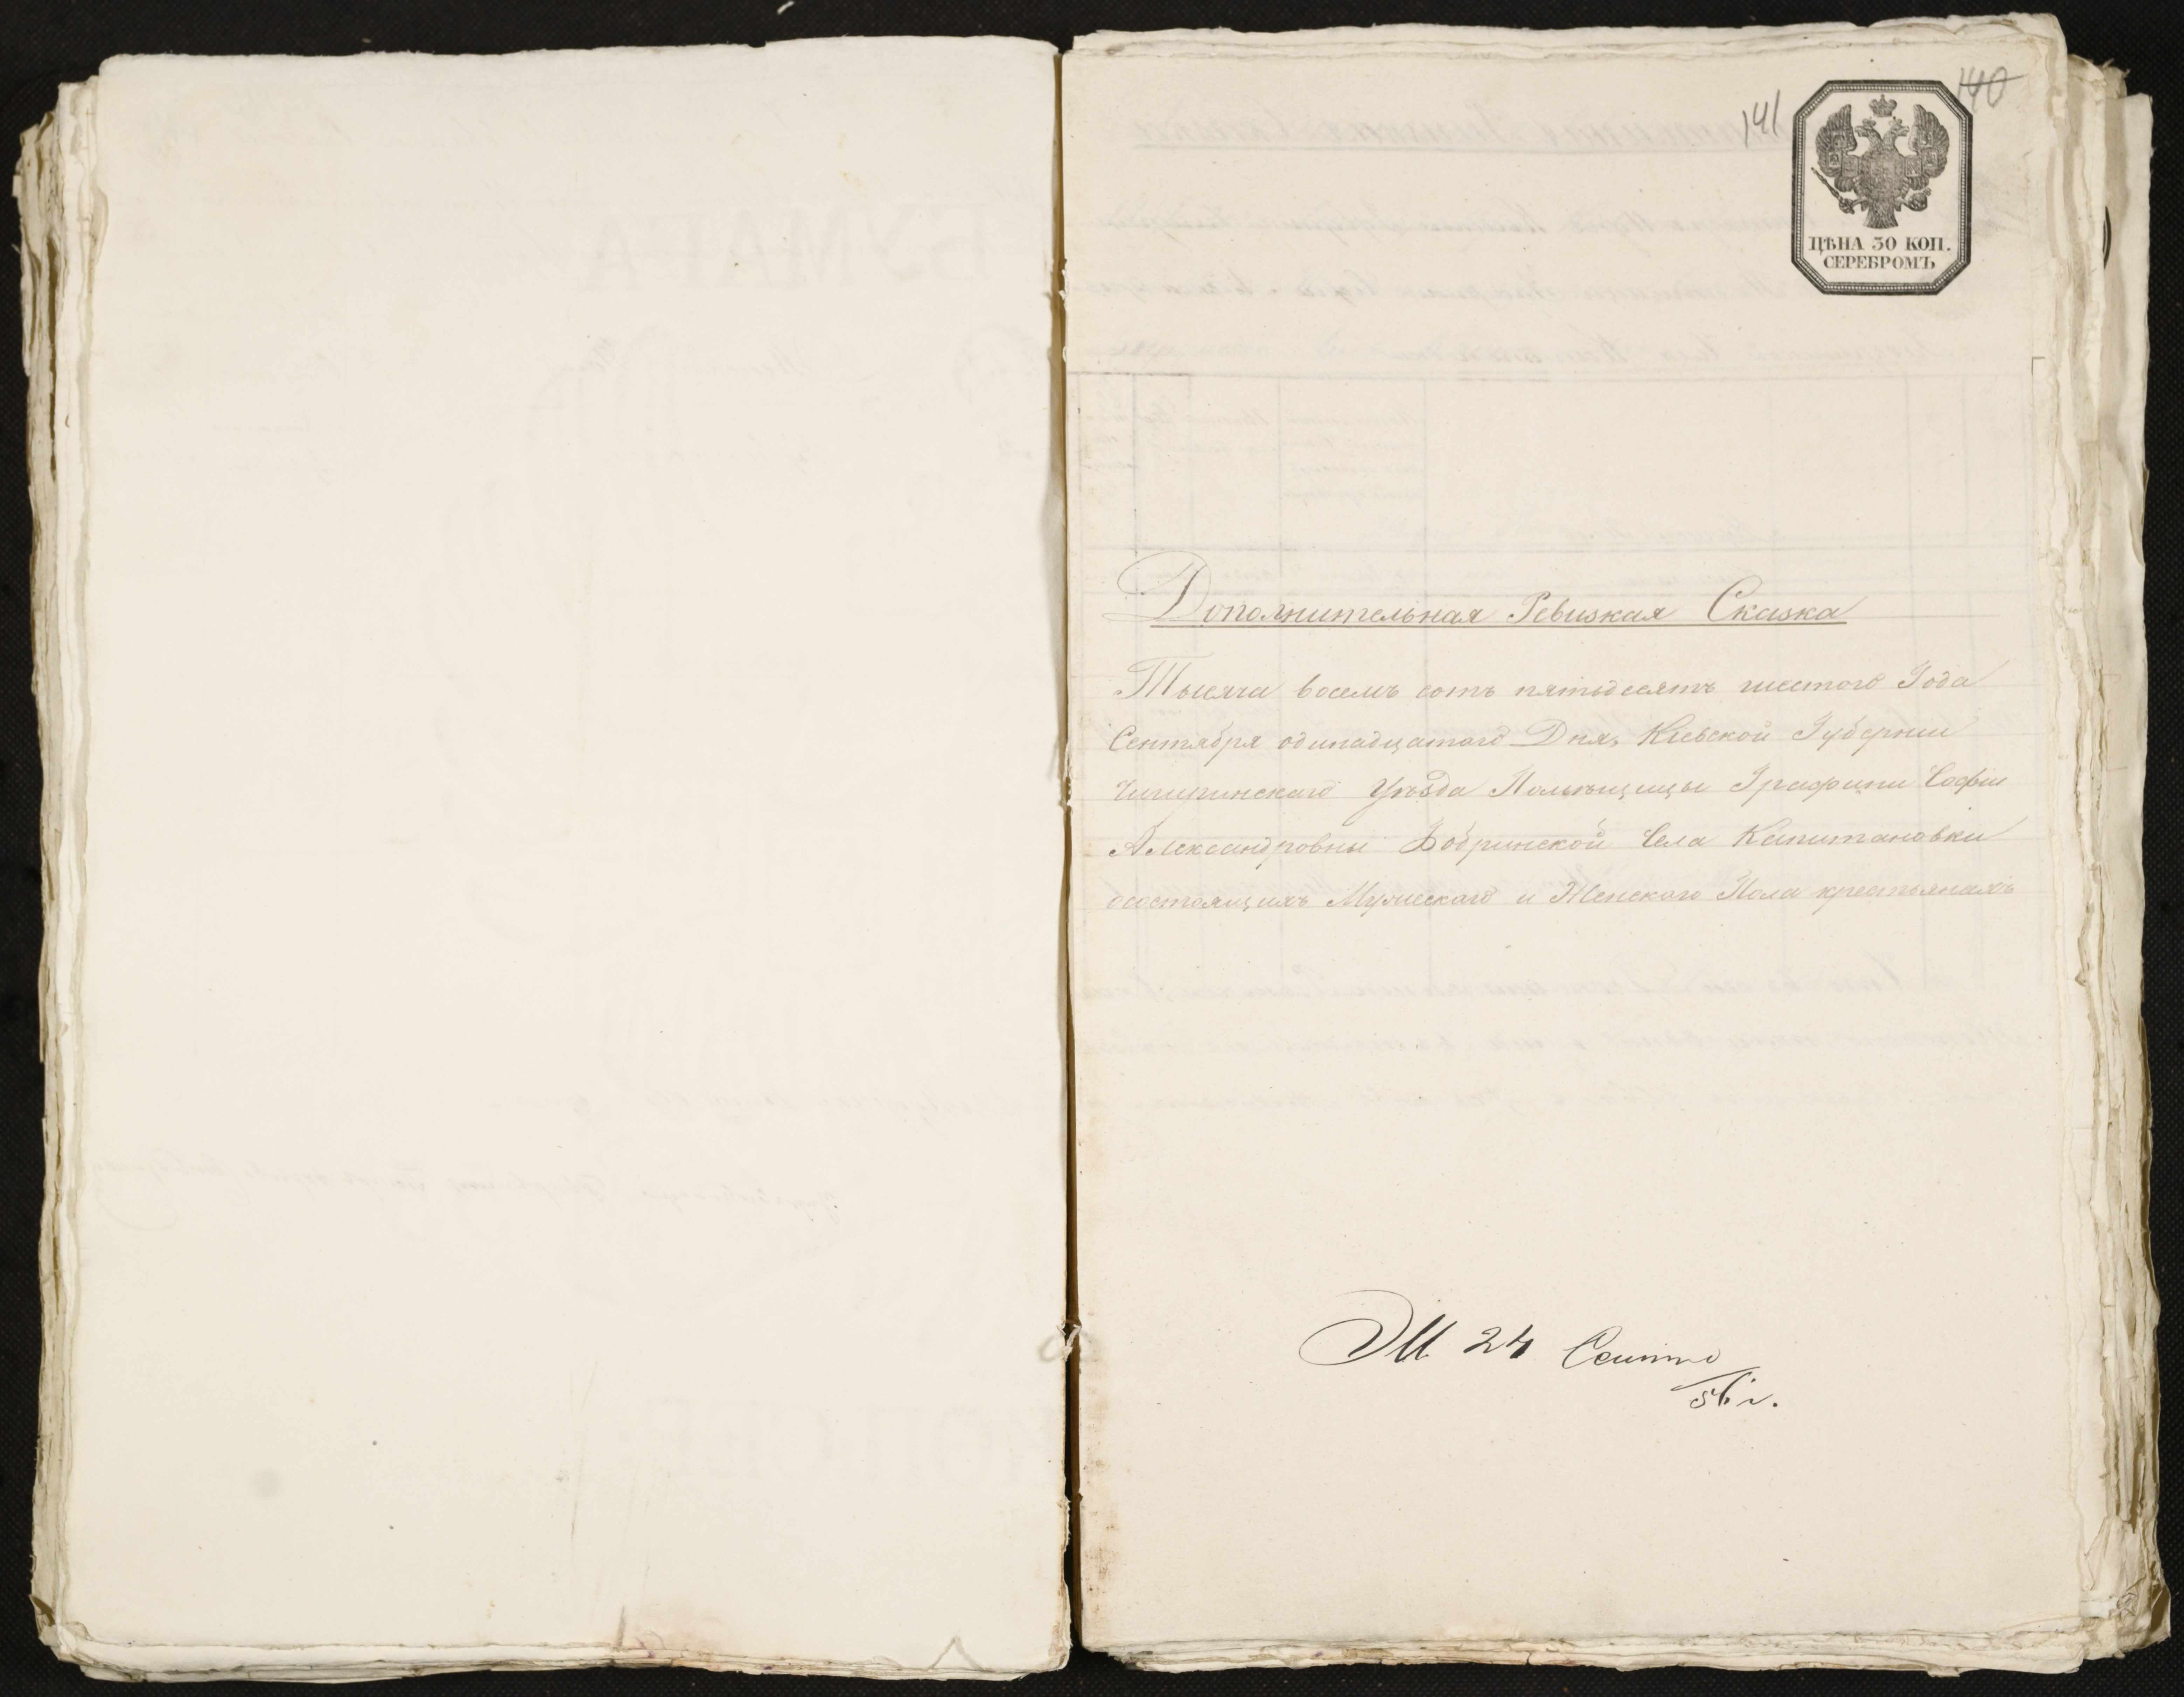 141
140
ЦѢНА 30 КОП.
СЕРЕБРОМЪ
Дополнительная Ревизкая Сказка
Тысяча восемъ сотъ пятьдесятъ шестого Года
Сентября одинадцатого Дня, Кіевской Губерніи
Чигиринскаго Уѣзда Помѣщицы Графини Софіи
Александровны Бобринской Села Капитановки
о состоящихъ Мужескаго и Женскаго Пола крестьянахъ
24
56 г.